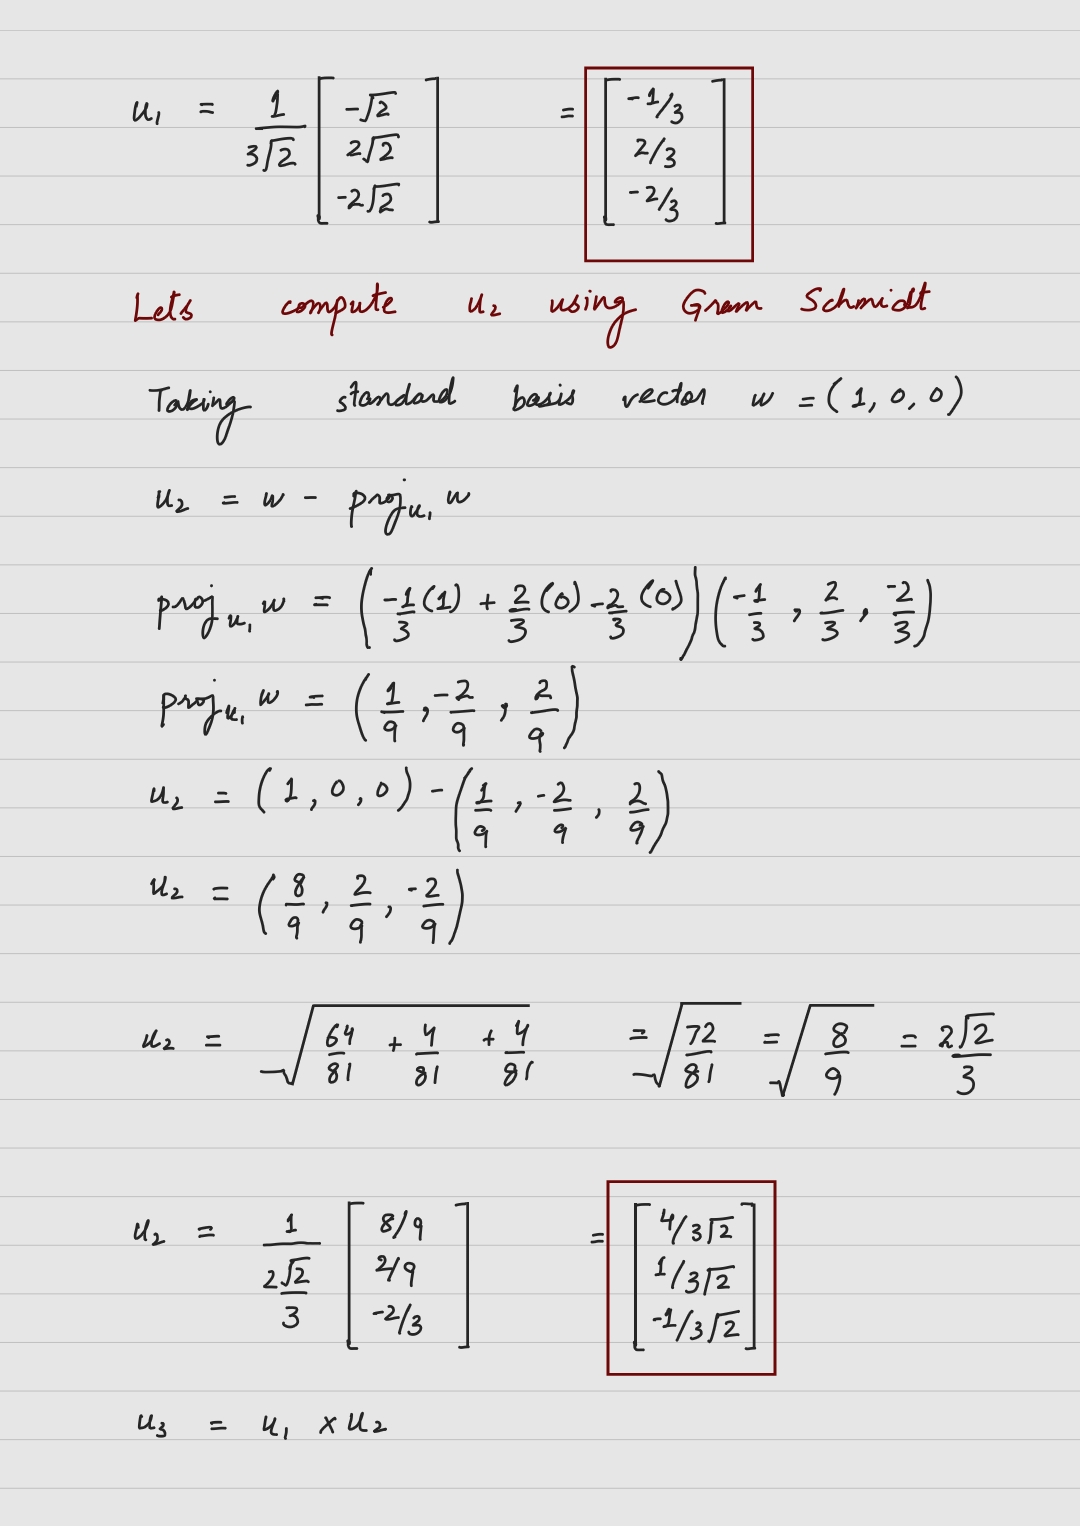 u₁ = 1/(3√2) [-√2 2√2 -2√2] = [-1/3 2/3 -2/3]
Lets compute u₂ using Gram Schmidt
Taking standard basis vector w = (1, 0, 0)
u₂ = w - proj_u₁ w
proj_u₁ w = (-1/3 (1) + 2/3 (0) - 2/3 (0)) (-1/3, 2/3, -2/3)
proj_u₁ w = (1/9, -2/9, 2/9)
u₂ = (1, 0, 0) - (1/9, -2/9, 2/9)
u₂ = (8/9, 2/9, -2/9)
u₂ = √(64/81 + 4/81 + 4/81) = √(72/81) = √(8/9) = 2√2/3
u₂ = 1/(2√2/3) [8/9 2/9 -2/3] = [4/3√2 1/3√2 -1/3√2]
u₃ = u₁ × u₂